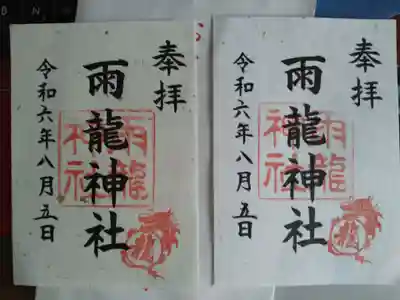 奉拝
雨龍神社
雨龍神社
令和六年八月五日
奉拝
雨龍神社
雨龍神社
令和六年八月五日